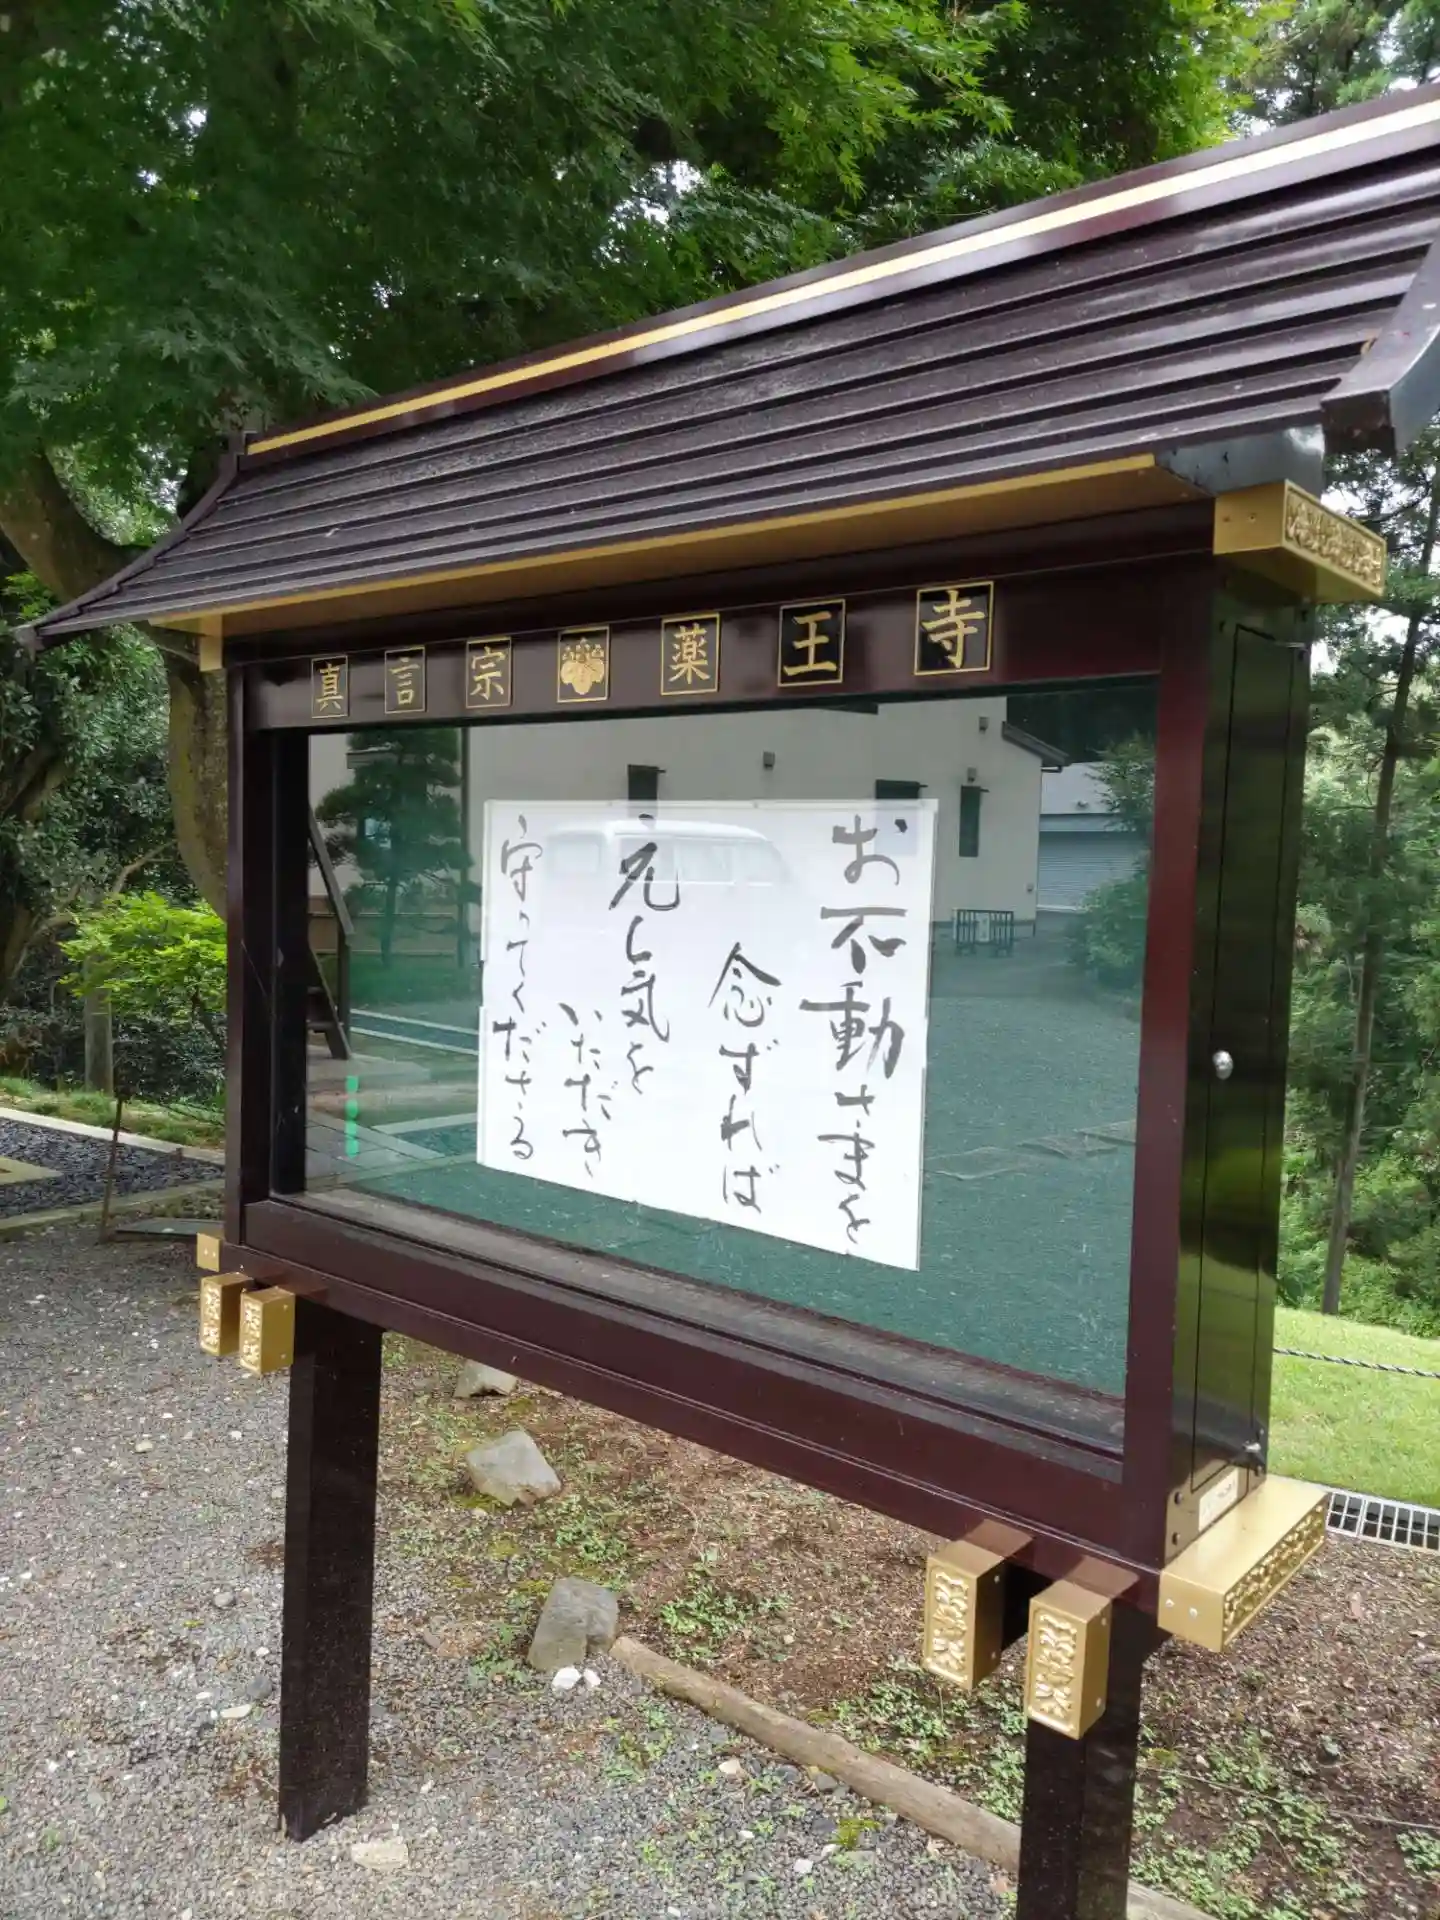 真言宗 薬王寺
お不動さまを
念ずれば
元気を
いただき
守ってくださる